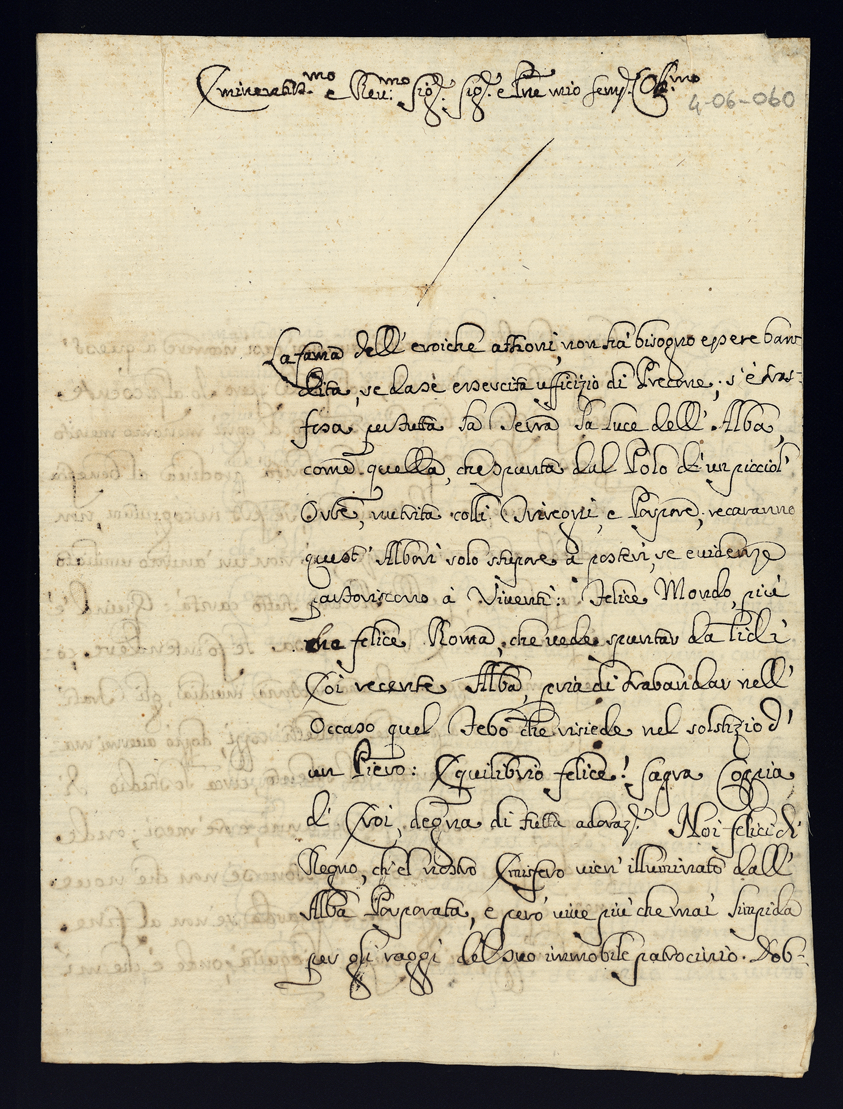 Eminentiss.mo e Reu.mo Sig.r Sig.r e Pne mio semp. Oss.mo
4-06-060
La fama dell' eroiche attioni, non hà bisogno essere ban-
dita, se da sè essercita uffizio di Precone; s' è tras-
fusa per tutta la Terra la luce dell' Alba,
come quella, che spunta dal Polo d' un picciol'
Orbe, nutrita colli Trireggni, e Porpore, recaranno
quest' Albori solo stupore a posteri, se euidenze
partoriscono à Viventi: Felice Mondo, più
che felice Roma, che uede spuntar da lidi
Eoi recente Alba, pria di trabandar nell'
Occaso quel Febo che risiede nel solstizio d'
un Piero: Equilibrio felice! sagra Coppia
di Eroi, degna di tutta adoraz.e Noi felici di
Regno, ch' el nostro Emisfero uien' illuminato dall'
Alba Porporata, e però uiue più che mai limpida
per gli raggi del suo immobile patrocinio. Dob-